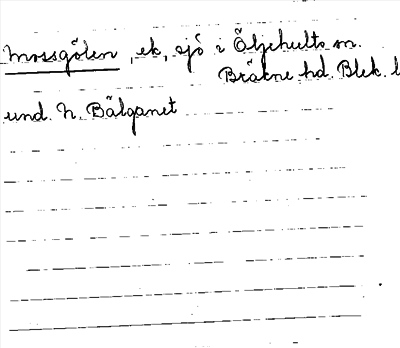 Mossgölen, ek, sjö i Öljehults sn.
Bräkne hd. Blek. l
und. N. Bälganet